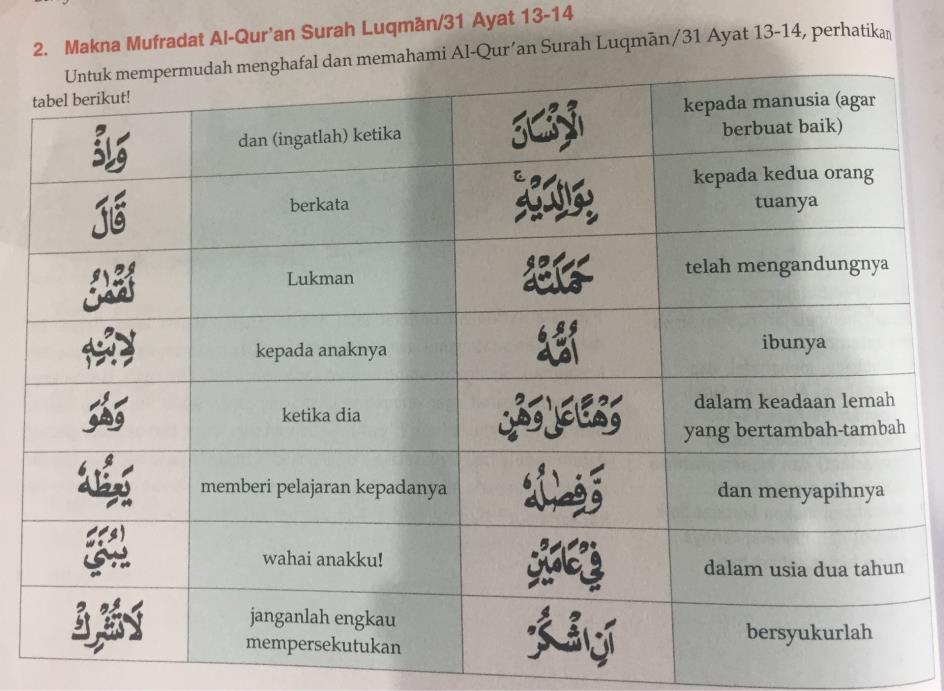 2. Makna Mufradat Al-Qur'an Surah Luqmān/31 Ayat 13-14
Untuk mempermudah menghafal dan memahami Al-Qur'an Surah Luqmān/31 Ayat 13-14, perhatikan
tabel berikut!
وَاِذْ
dan (ingatlah) ketika
الْاِنْسَانَ
kepada manusia (agar
berbuat baik)
قَالَ
berkata
بِوَالِدَيْهِۚ
kepada kedua orang
tuanya
لُقْمٰنُ
Lukman
حَمَلَتْهُ
telah mengandungnya
لِابْنِهٖ
kepada anaknya
اُمُّهٗ
ibunya
وَهُوَ
ketika dia
وَهْنًا عَلٰى وَهْنٍ
dalam keadaan lemah
yang bertambah-tambah
يَعِظُهٗ
memberi pelajaran kepadanya
وَّفِصٰلُهٗ
dan menyapihnya
يٰبُنَيَّ
wahai anakku!
فِيْ عَامَيْنِ
dalam usia dua tahun
لَا تُشْرِكْ
janganlah engkau
mempersekutukan
اَنِ اشْكُرْ
bersyukurlah